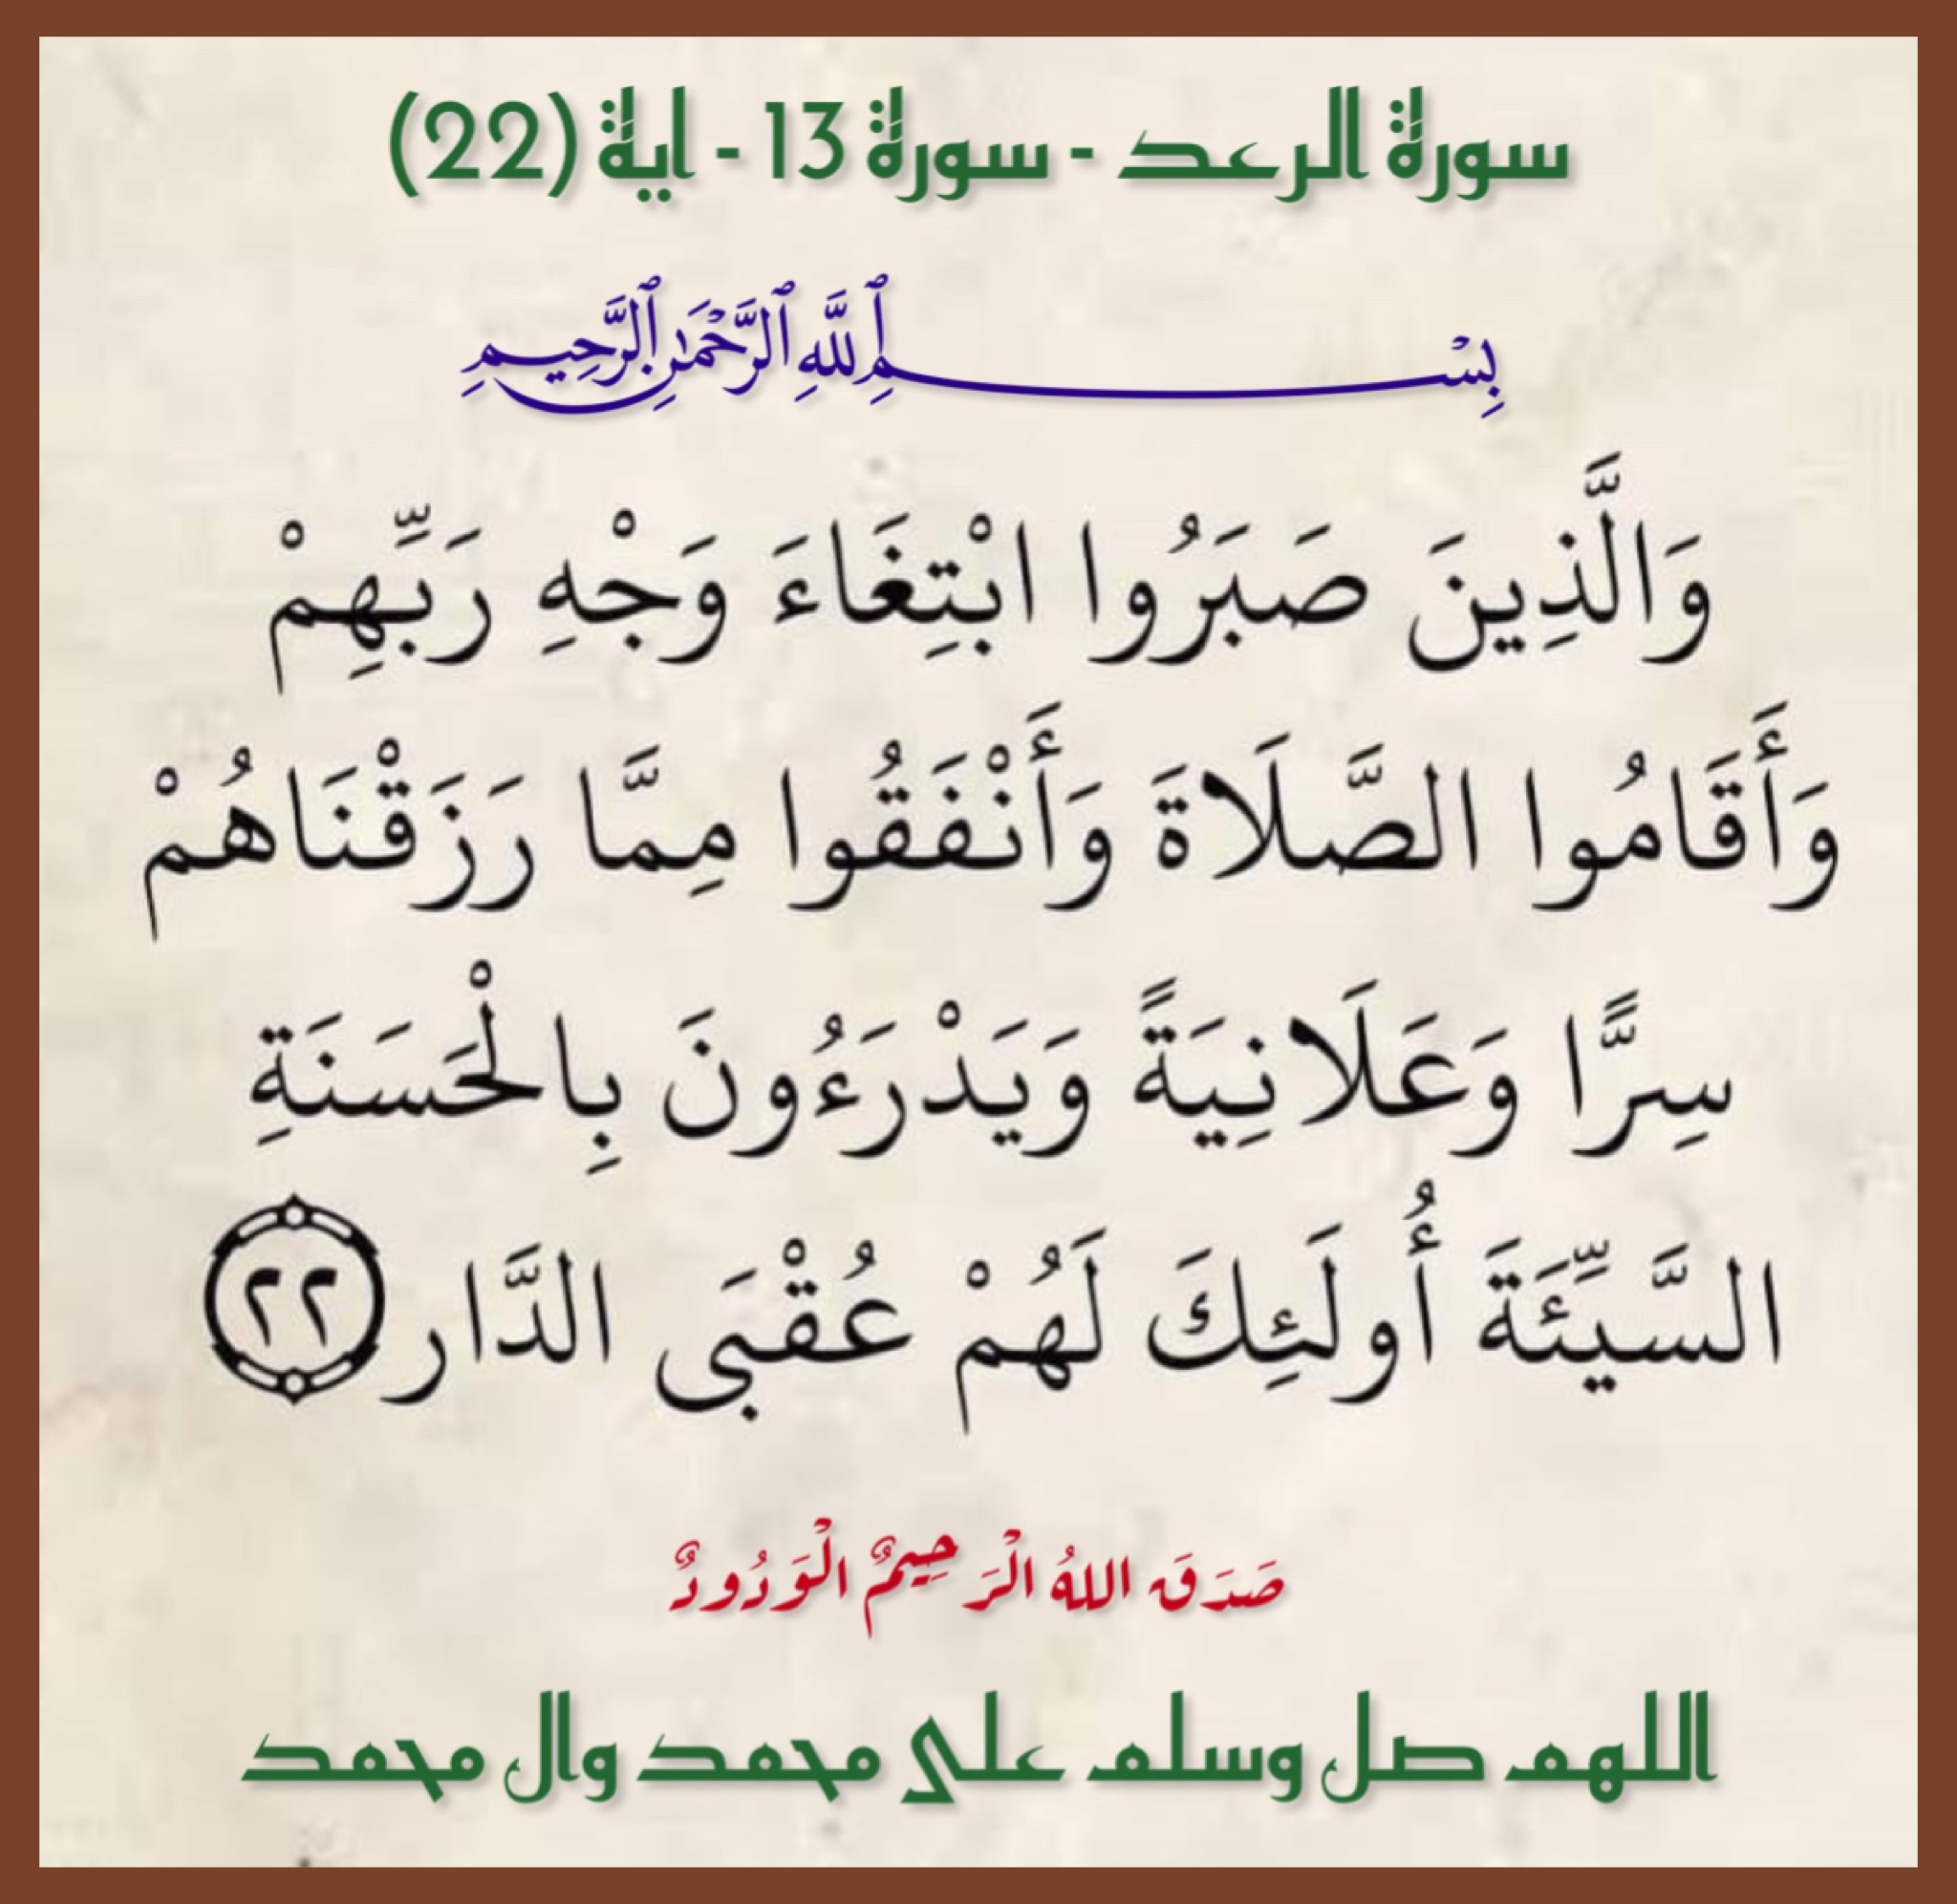 سورة الرعد - سورة 13 - اية (22)
بِسْمِ ٱللَّهِ ٱلرَّحْمَٰنِ ٱلرَّحِيمِ
وَالَّذِينَ صَبَرُوا ابْتِغَاءَ وَجْهِ رَبِّهِمْ
وَأَقَامُوا الصَّلَاةَ وَأَنْفَقُوا مِمَّا رَزَقْنَاهُمْ
سِرًّا وَعَلَانِيَةً وَيَدْرَءُونَ بِالْحَسَنَةِ
السَّيِّئَةَ أُولَئِكَ لَهُمْ عُقْبَى الدَّار ٢٢
صَدَقَ اللهُ الْرَحِيمٌ الْوَدُودٌ
اللهم صل وسلم على محمد وال محمد